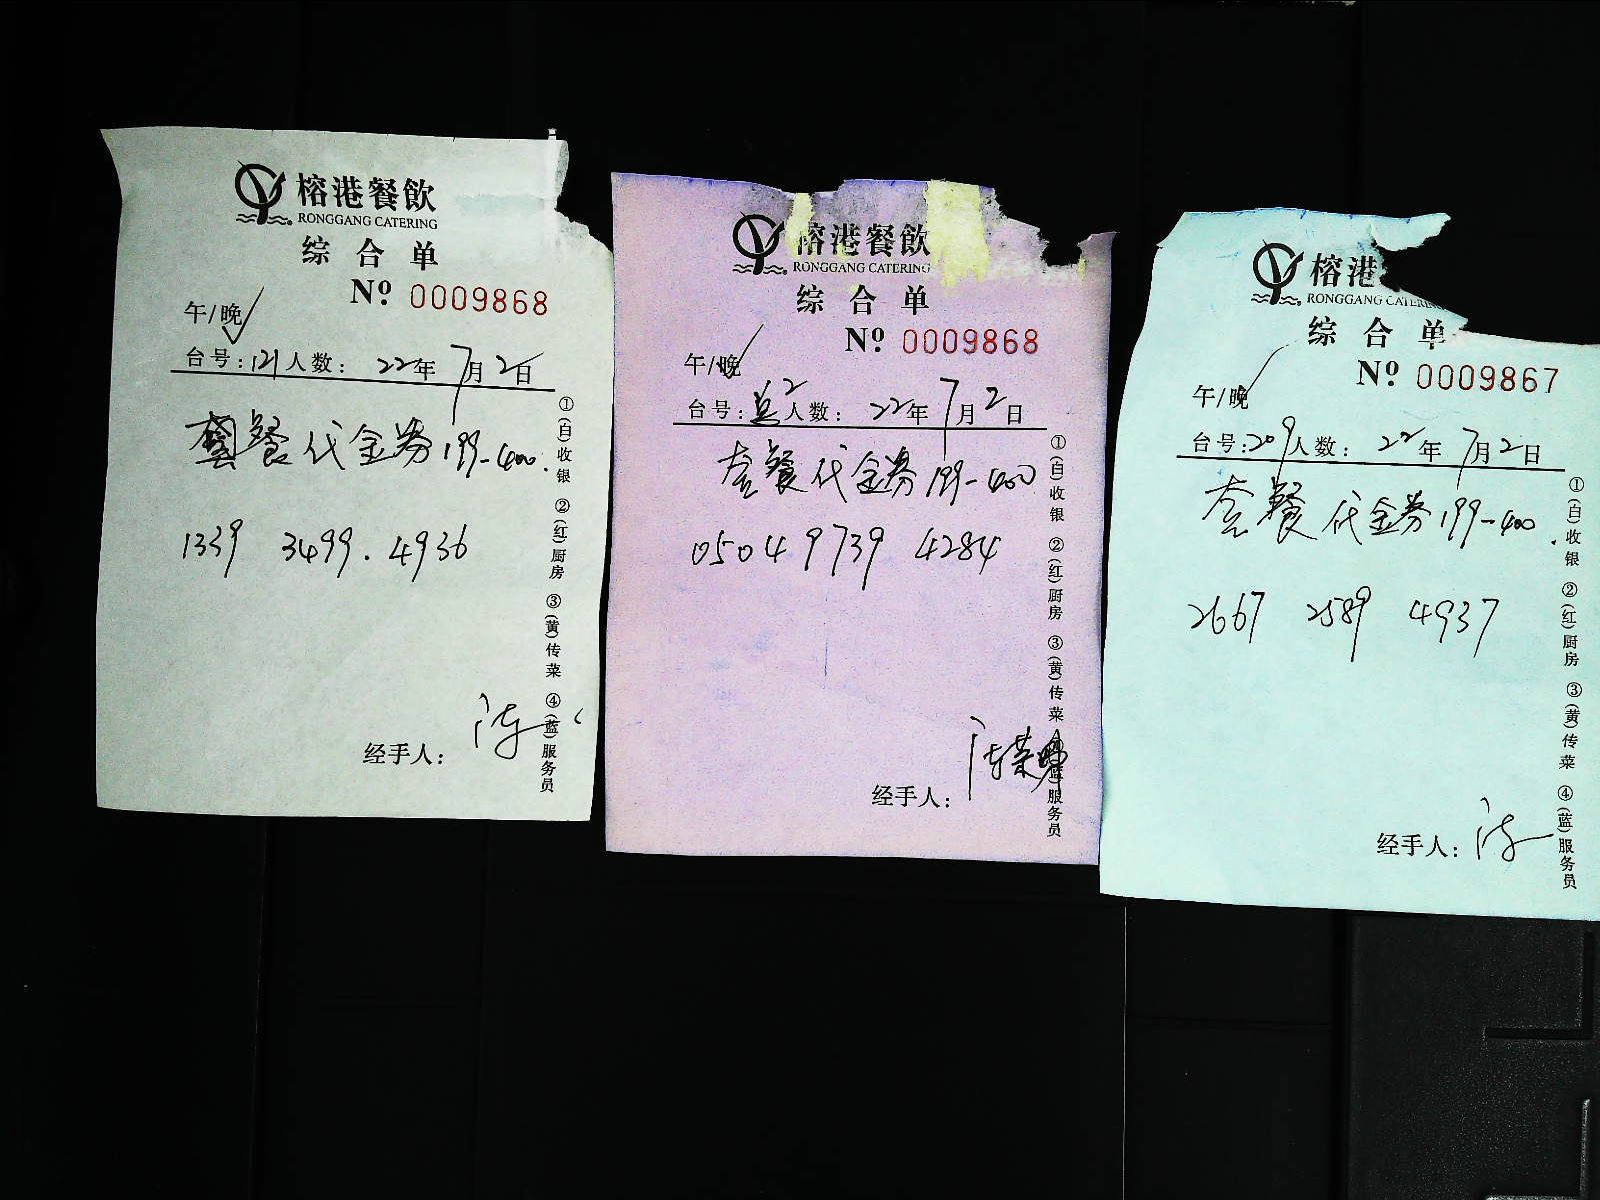 榕港餐飲
RONGGANG CATERING
综合单
Nº 0009868
午/晚
台号: 121 人数: 22年7月2日
套餐代金券199-400.
1339 3499. 4936
经手人: 陈
①(白)收银 ②(红)厨房 ③(黄)传菜 ④(蓝)服务员
榕港餐飲
RONGGANG CATERING
综合单
Nº 0009868
午/晚
台号: 2 人数: 22年7月2日
套餐代金券199-400
0504 9739 4284
经手人: 陈荣
①(白)收银 ②(红)厨房 ③(黄)传菜 (蓝)服务员
榕港
RONGGANG CATER
综合单
Nº 0009867
午/晚
台号: 209 人数: 22年7月2日
套餐代金券199-400.
2667 2589 4937
经手人: 陈
①(白)收银 ②(红)厨房 ③(黄)传菜 ④(蓝)服务员